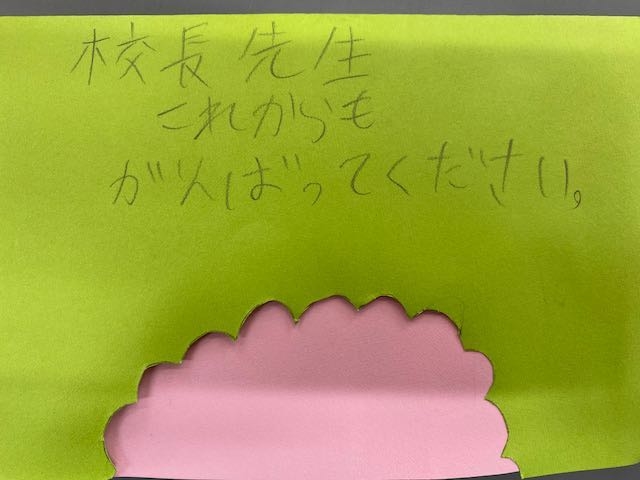 校長先生
これからも
がんばってください。